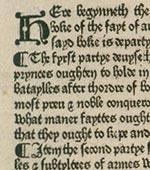 HEre begynneth the
boke of the fayt of a
sayd boke is departy
The fyrst partye deuyse
prynces oughten to holde in
bataylles after thordre of bo
most preu & noble conquero
What maner fayttes ought
that they ought to kepe and
Item the second partye s
les & subtyltees of armes W